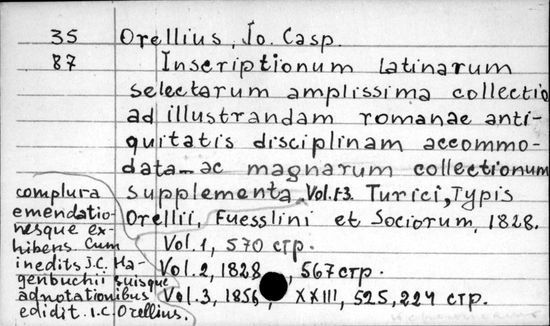 35 Orellius, Jo. Casp.
87 Inscriptionum latinarum
selectarum amplissima collectio
ad illustrandam romanae anti-
quitatis disciplinam accommo-
data ac magnarum collectionum
supplementa. Vol. 1-3. Turici, Typis
Orellii, Fuesslini et Sociorum, 1828.
Vol. 1, 570 стр.
Vol. 2, 1828, 567 стр.
Vol. 3, 1856, XXIII, 525, 224 стр.
complura
emendatio-
nesque ex-
hibens. Cum
ineditis J.C. Ha-
genbuchii suisque
adnotationibus
edidit. I.C. Orellius.